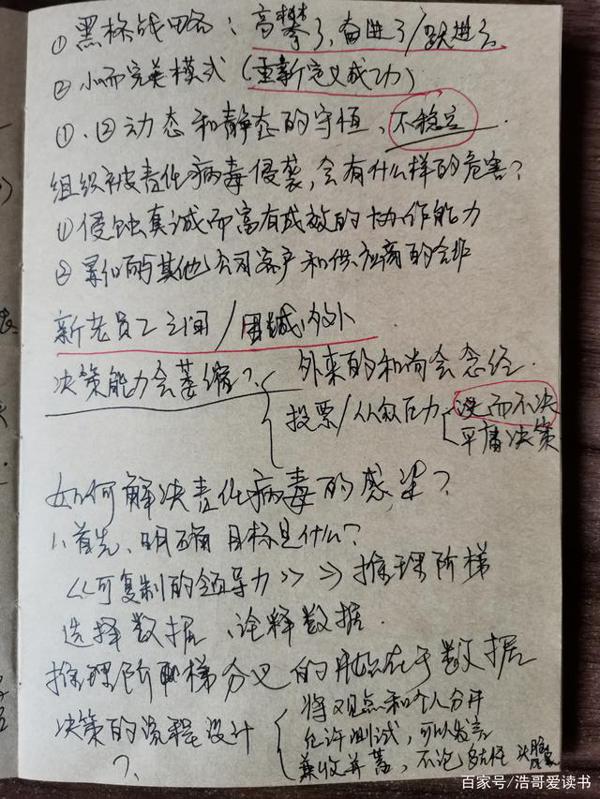 ① 黑格战略：高攀了，奋进了/跃进了
② 小而完美模式（重新定义成功）
①、②动态和静态的守恒、不稳定.
组织被责任病毒侵袭，会有什么样的危害？
① 侵蚀真诚而富有成效的协作能力
② 累和其他公司客户和供应商的合作
新老员工之间/围城内外
决策能力会萎缩？
外来的和尚会念经.
投票/从众压力
议而不决
平庸决策
如何解决责任病毒的感染？
1、首先、明确目标是什么？
《可复制的领导力》⇒推理阶梯
选择数据、诠释数据.
推理阶梯分叉的开始在于数据
决策的流程设计
？
将观点和个人分开
允许测试，可以发言
兼收并蓄，不论多古怪
百家号/浩哥爱读书